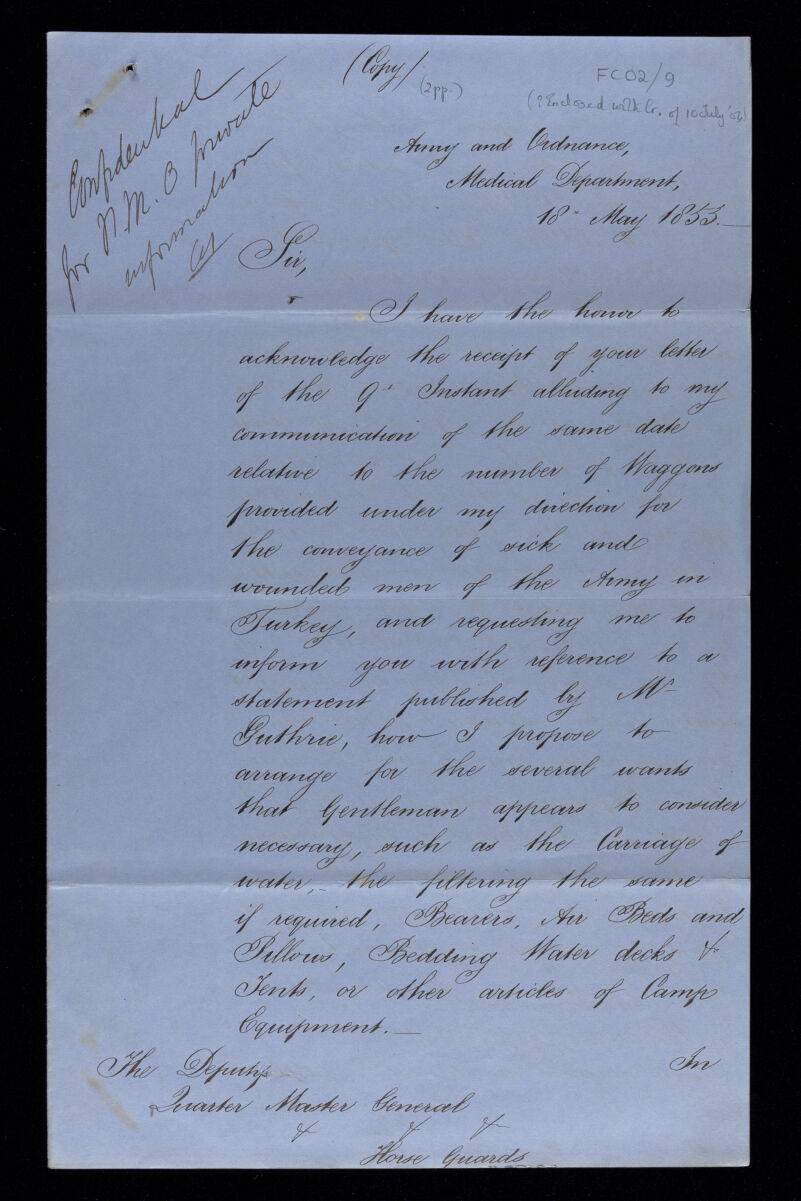 (Copy)
(2pp.)
FC02/9
(? Enclosed with lr. of 10 July '02)
Confidential
for P.M.O private
information
Army and Ordnance,
Medical Department,
18th May 1853.
Sir,
I have the honor to
acknowledge the receipt of your letter
of the 9th Instant alluding to my
communication of the same date
relative to the number of Waggons
provided under my direction for
the conveyance of sick and
wounded men of the Army in
Turkey, and requesting me to
inform you with reference to a
statement published by Mr
Guthrie, how I propose to
arrange for the several wants
that Gentleman appears to consider
necessary, such as the Carriage of
water, - the filtering the same
if required, Bearers, Air Beds and
Pillows, Bedding Water decks &
Tents, or other articles of Camp
Equipment. —
In
The Deputy
Quarter Master General
& & &
Horse Guards